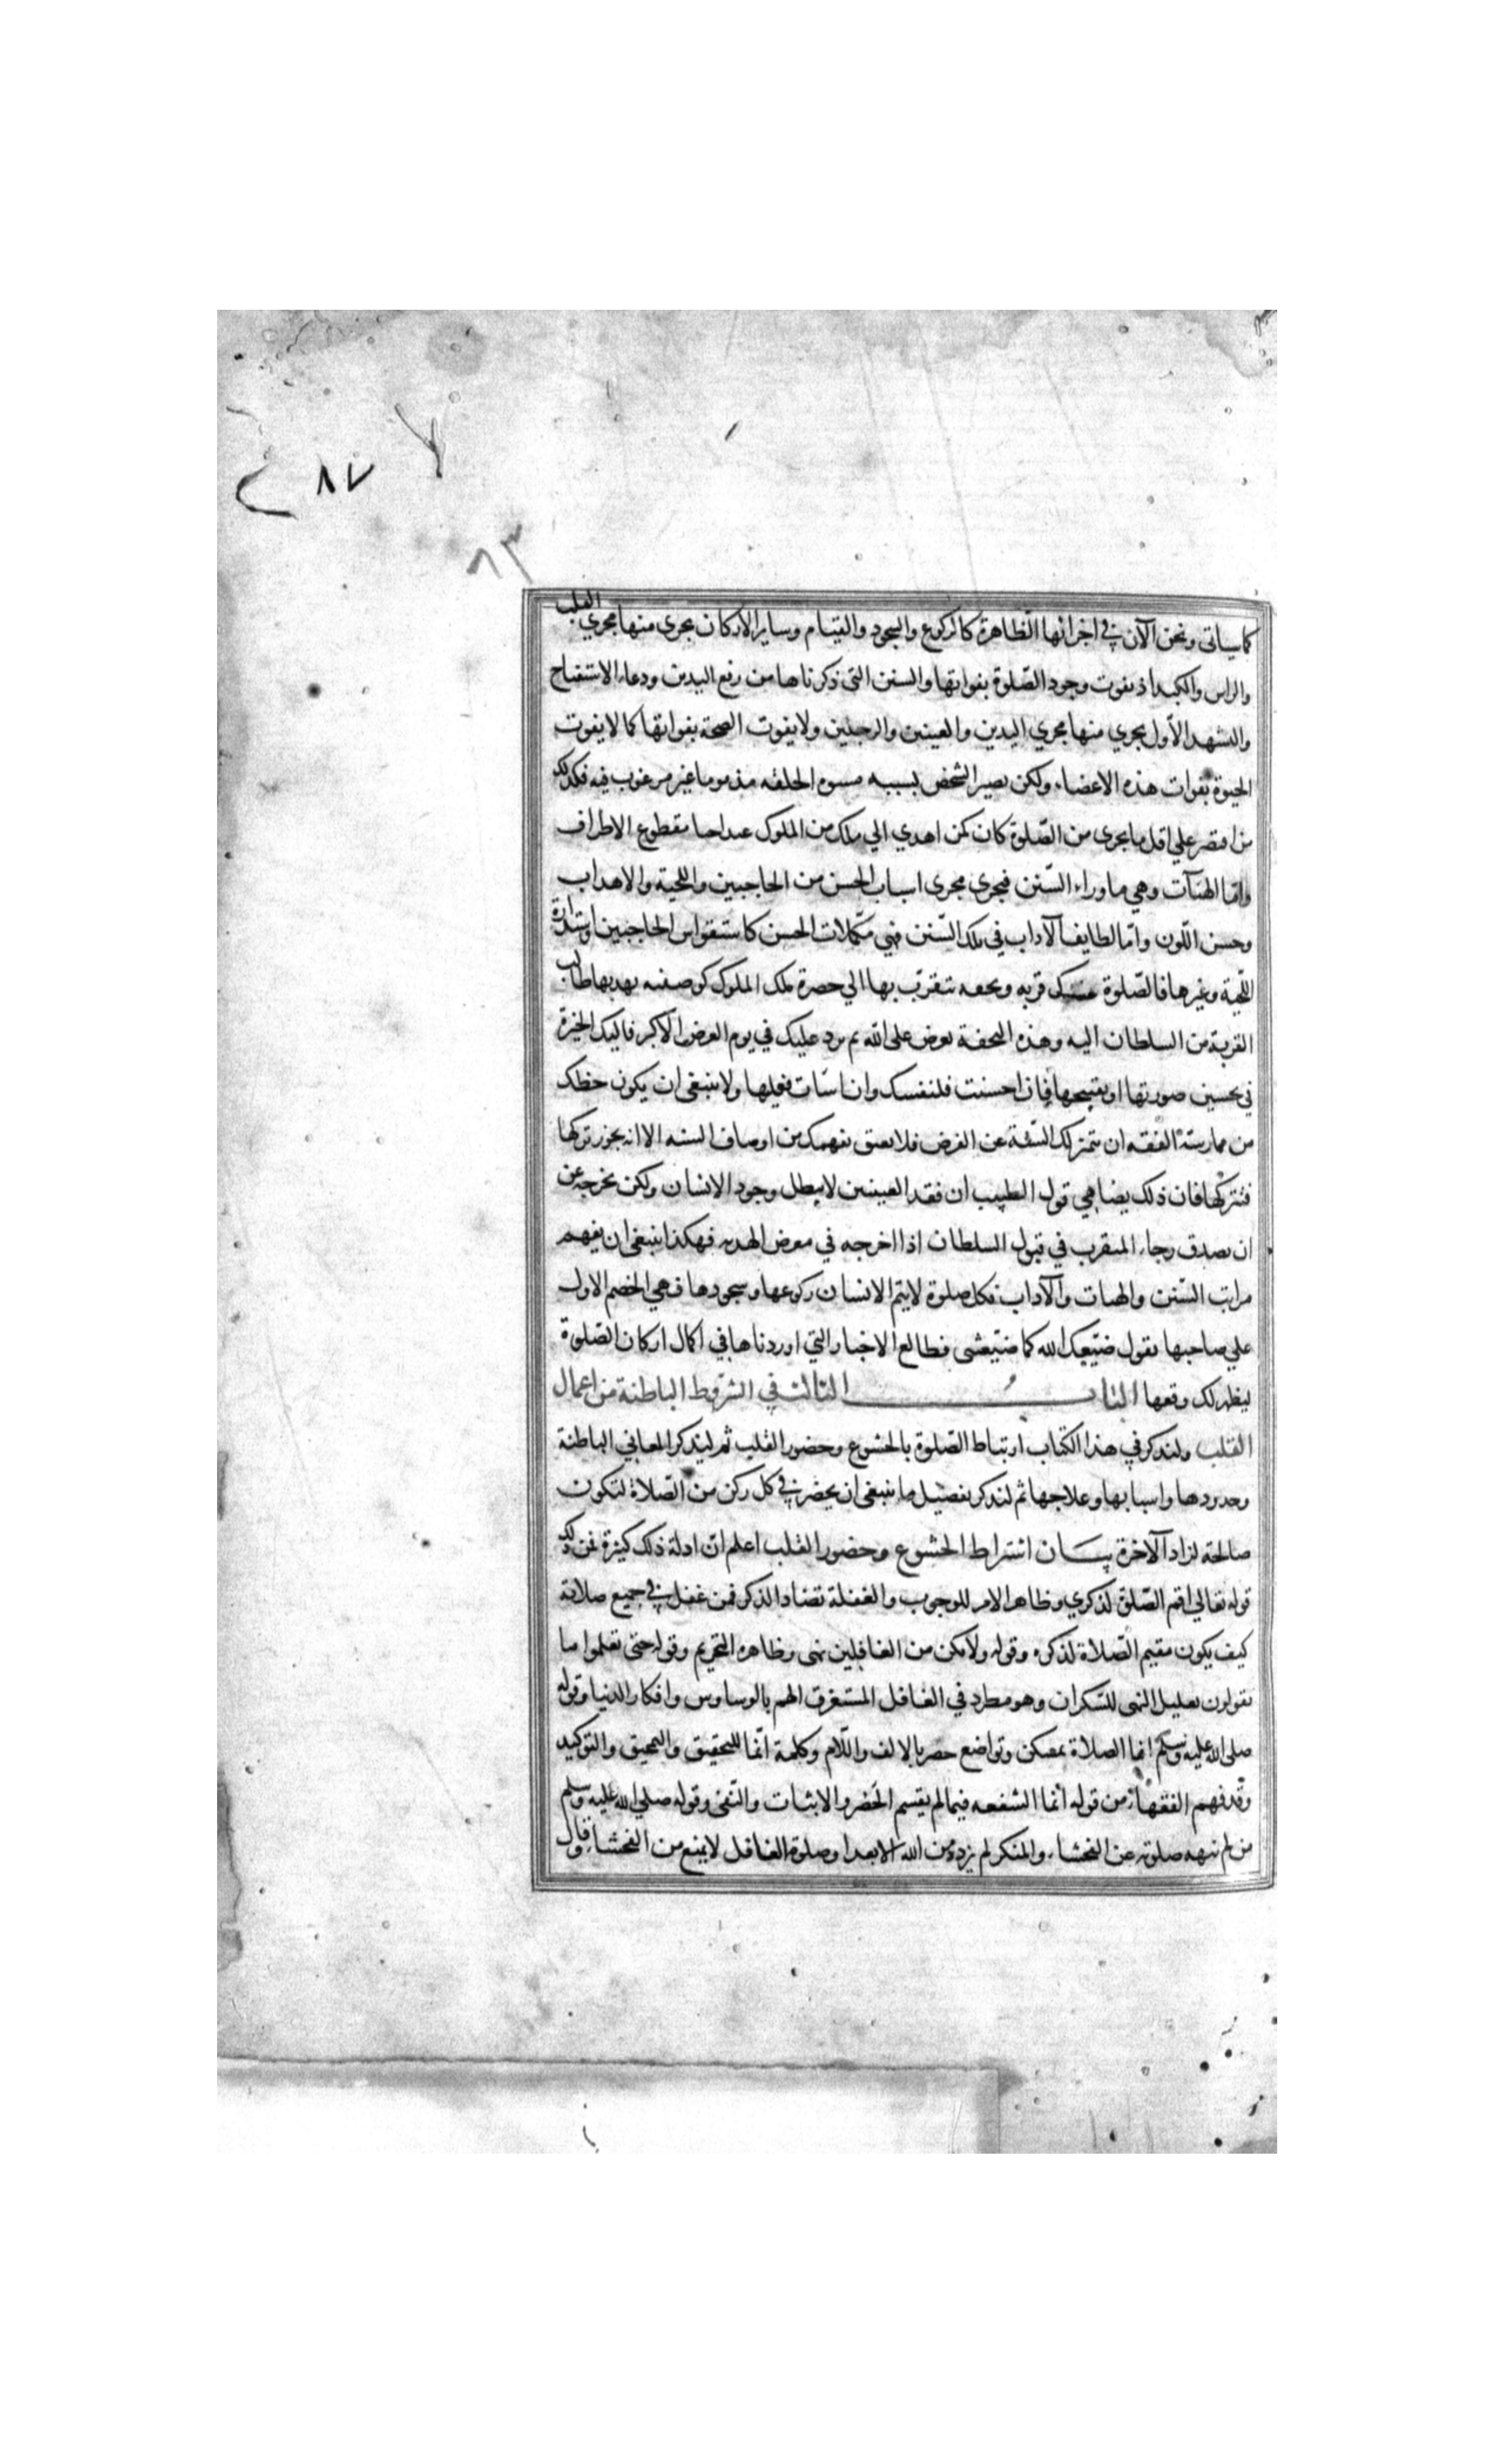 ٨٧
٨٣
كما سياتى ونحن الآن في اجزائها الظاهرة كالركوع والسجود والقيام وساير الاركان يجرى منها مجري القلب
والراس والكبد اذ يفوت وجود الصّلوة بفواتها والسنن التى ذكرناها من رفع اليدين ودعاء الاستفتاح
والتشهد الاول يجري منها مجري اليدين والعينين والرجلين ولا يفوت الصحة بفواتها كما لا يفوت
الحيوة بفوات هذه الاعضاء ولكن يصير الشخص بسببه مسوه الخلقه مذموما غير مرغوب فيه فكذلك
من اقتصر علي اقل ما يجرى من الصّلوة كان كمن اهدي الي ملك من الملوك عبدا حيا مقطوع الاطراف
وامّا الهيآت وهي ما وراء السّنن فيجري مجرى اسباب الحسن من الحاجبين واللحية والاهداب
وحسن اللّون وامّا لطايف الآداب في تلك السّنن فهي مكمّلات الحسن كاستقواس الحاجبين واستدارة
اللّحية وغيرها فالصّلوة عندك قربه وتحفه تتقرّب بها الي حضرة ملك الملوك كوصيفه يهديها طالب
القربة من السلطان اليه وهذه التحفة تعرض على الله ثم يرد عليك في يوم العرض الاكبر فاليك الخيرة
في تحسين صورتها او تقبيحها فان احسنت فلنفسك وان اسات فعليها ولا ينبغى ان يكون حظك
من ممارسة الفقه ان يتميز لك السّنة عن الفرض فلا يعتق بفهمك من اوصاف السنه الا انه يجوز تركها
فتتركها فان ذلك يضاهي قول الطبيب ان فقد العينين لا يبطل وجود الانسان ولكن يخرجه عن
ان يصدق رجاء المتقرب في قبول السلطان اذا اخرجه في معرض الهديه فهكذا ينبغى ان يفهم
مراتب السّنن والهيات والآداب فكل صلوة لا يتم الانسان ركوعها وسجودها فهي الخصم الاول
علي صاحبها يقول ضيّعك الله كما ضيّعتنى فطالع الاخبار التي اوردناها في اكمال اركان الصّلوة
ليظهر لك وقعها الباب الثالث في الشروط الباطنة من اعمال
القلب ولنذكر في هذا الكتاب ارتباط الصّلوة بالخشوع وحضور القلب ثم لنذكر المعاني الباطنة
وحدودها واسبابها وعلاجها ثم لنذكر تفصيل ما ينبغى ان يحضر في كل ركن من الصّلاة لتكون
صالحة لزاد الآخرة بيـــان اشتراط الخشوع وحضور القلب اعلم انّ ادلة ذلك كثيرة فمن ذلك
قوله تعالي اقم الصّلوة لذكري وظاهر الامر للوجوب والغفلة تضاد الذكر فمن غفل في جميع صلاته
كيف يكون مقيم الصّلاة لذكره وقوله ولا تكن من الغافلين نهى وظاهره التحريم وقوله حتى تعلموا ما
تقولون تعليل النهى للسّكران وهو مطرد في الغافل المستغرق الهم بالوساوس وافكار الدنيا وقوله
صلى الله عليه وسلم انما الصلاة تمسكن وتواضع حصر بالالف واللّام وكلمة انّما للتحقيق والتوكيد
وقد فهم الفقهاء من قوله انما الشفعه فيما لم يقسم الحصر والاثبات والنّفى وقوله صلي الله عليه وسلم
من لم تنهه صلوته عن الفحشاء والمنكر لم يزده من الله الا بعدا وصلوة الغافل لا يمنع من الفحشاء وقال